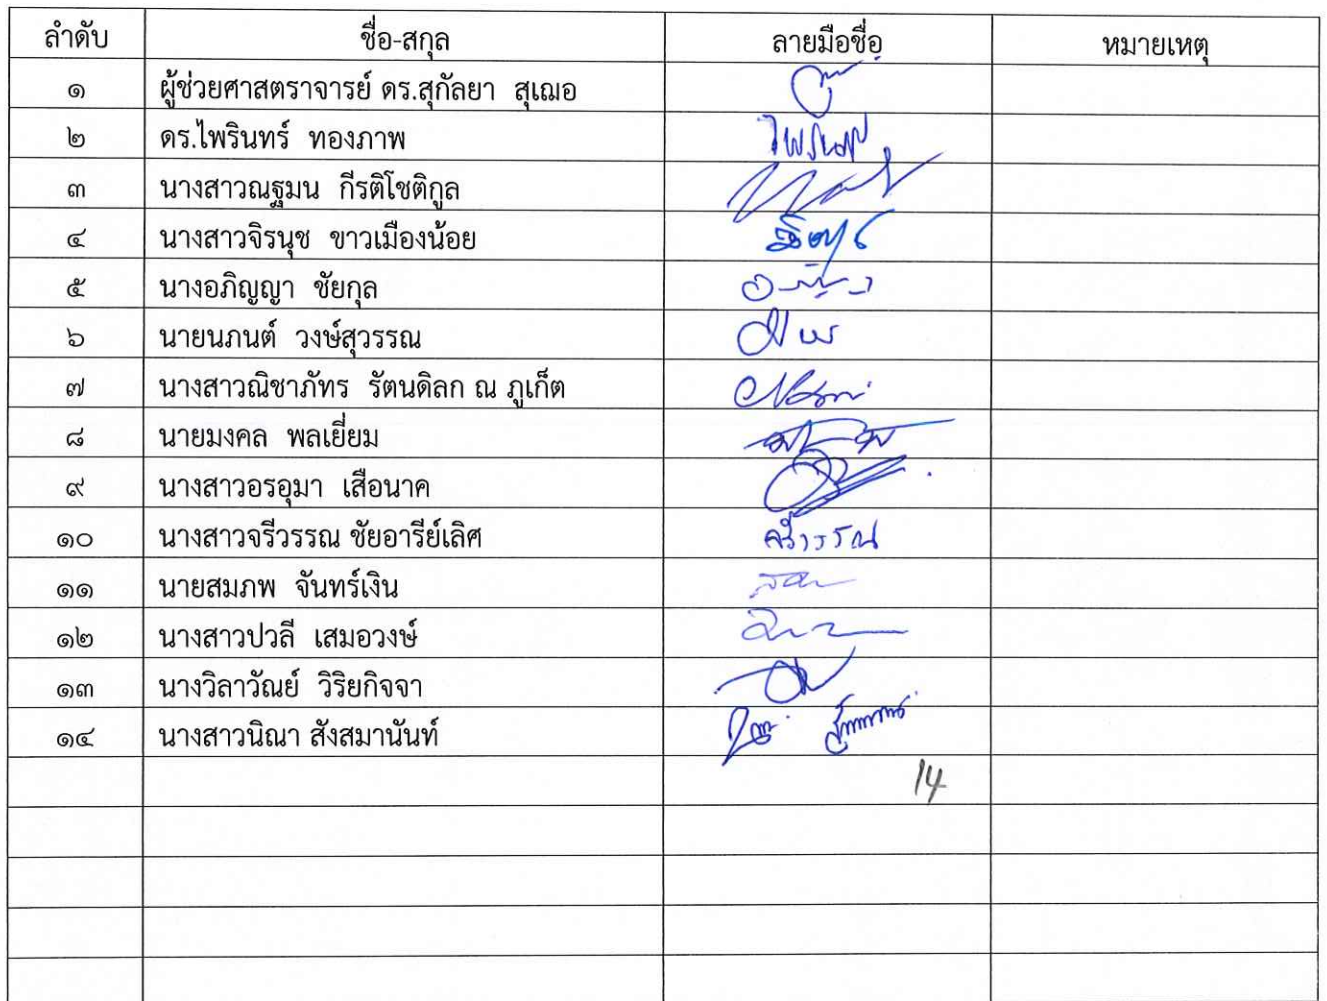 ลำดับ ชื่อ-สกุล ลายมือชื่อ หมายเหตุ
๑ ผู้ช่วยศาสตราจารย์ ดร.สุกัลยา สุเฌอ
๒ ดร.ไพรินทร์ ทองภาพ ไพรินทร์
๓ นางสาวณฐมน กีรติโชติกูล
๔ นางสาวจิรนุช ขาวเมืองน้อย
๕ นางอภิญญา ชัยกุล
๖ นายนภนต์ วงษ์สุวรรณ
๗ นางสาวณิชาภัทร รัตนดิลก ณ ภูเก็ต
๘ นายมงคล พลเยี่ยม
๙ นางสาวอรอุมา เสือนาค
๑๐ นางสาวจรีวรรณ ชัยอารีย์เลิศ จรีวรรณ
๑๑ นายสมภพ จันทร์เงิน
๑๒ นางสาวปวลี เสมอวงษ์
๑๓ นางวิลาวัณย์ วิริยกิจจา
๑๔ นางสาวนิณา สังสมานันท์
14